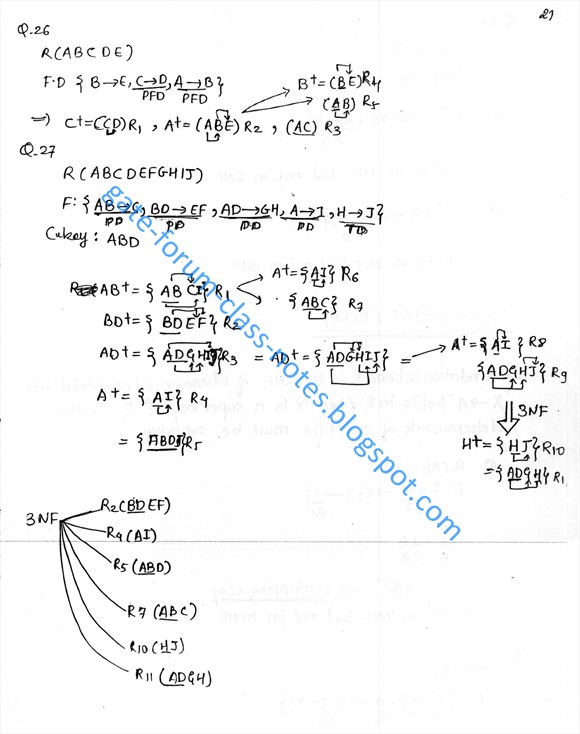 21
Q.26
R(ABCDE)
F.D {B→E, C→D, A→B}
PFD PFD
B+=(BE)R4
(AB) R5
⇒ C+=(CD)R1, A+=(ABE)R2, (AC) R3
Q.27
R(ABCDEFGHIJ)
F: {AB→C, BD→EF, AD→GH, A→I, H→J}
PD PD PD PD TD
C.key: ABD
AB+={ABCI}R1
A+={AI} R6
{ABC} R7
BD+={BDEF}R2
AD+={ADGHIJ}R3 = AD+={ADGHIJ} =
A+={AI} R8
{ADGHJ} R9
A+={AI} R4
={ABD}R5
3NF
H+={HJ}R10
={ADGH}R1
3NF
R2(BDEF)
R4(AI)
R5(ABD)
R7(ABC)
R10(HJ)
R11(ADGH)
gate-forum-class-notes.blogspot.com